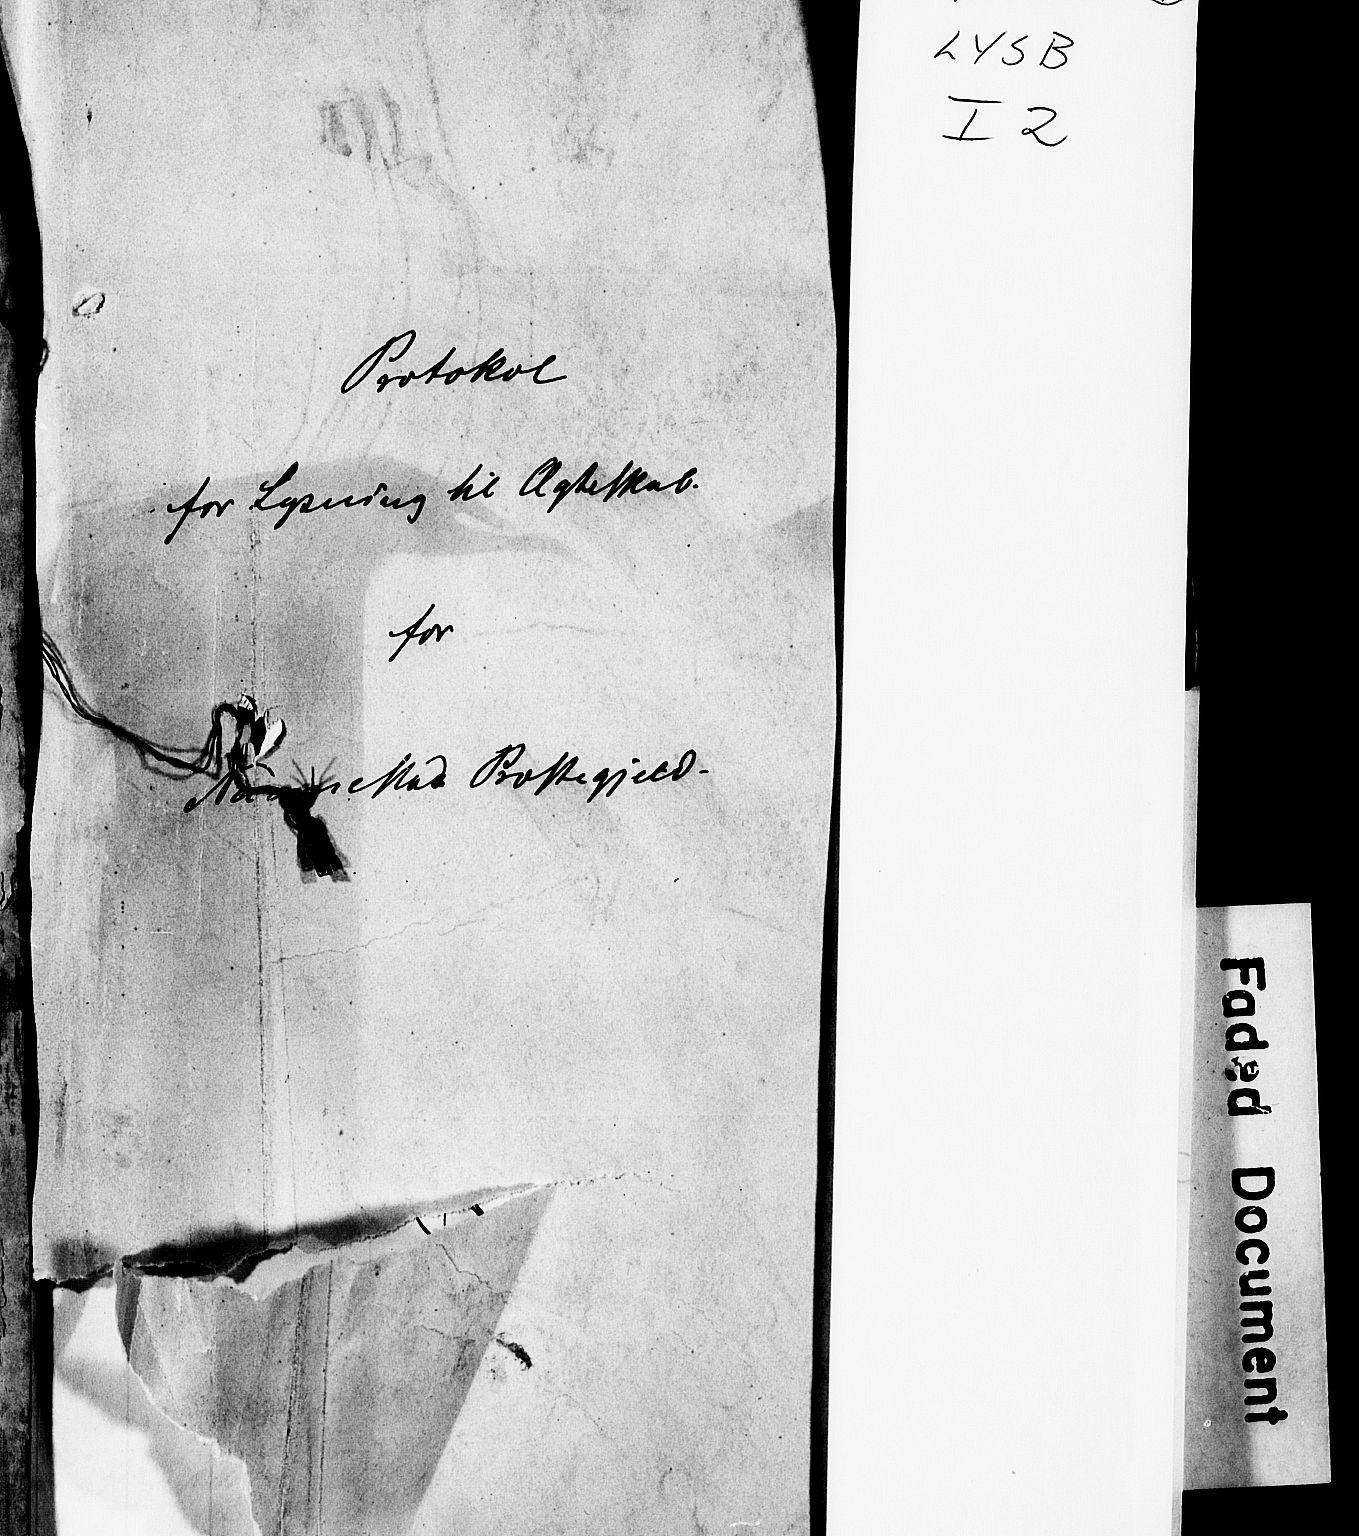 LYSB
I 2
Protokol
for Lysning til Ægteskab.
for
Præstegjeld.
Faded Document